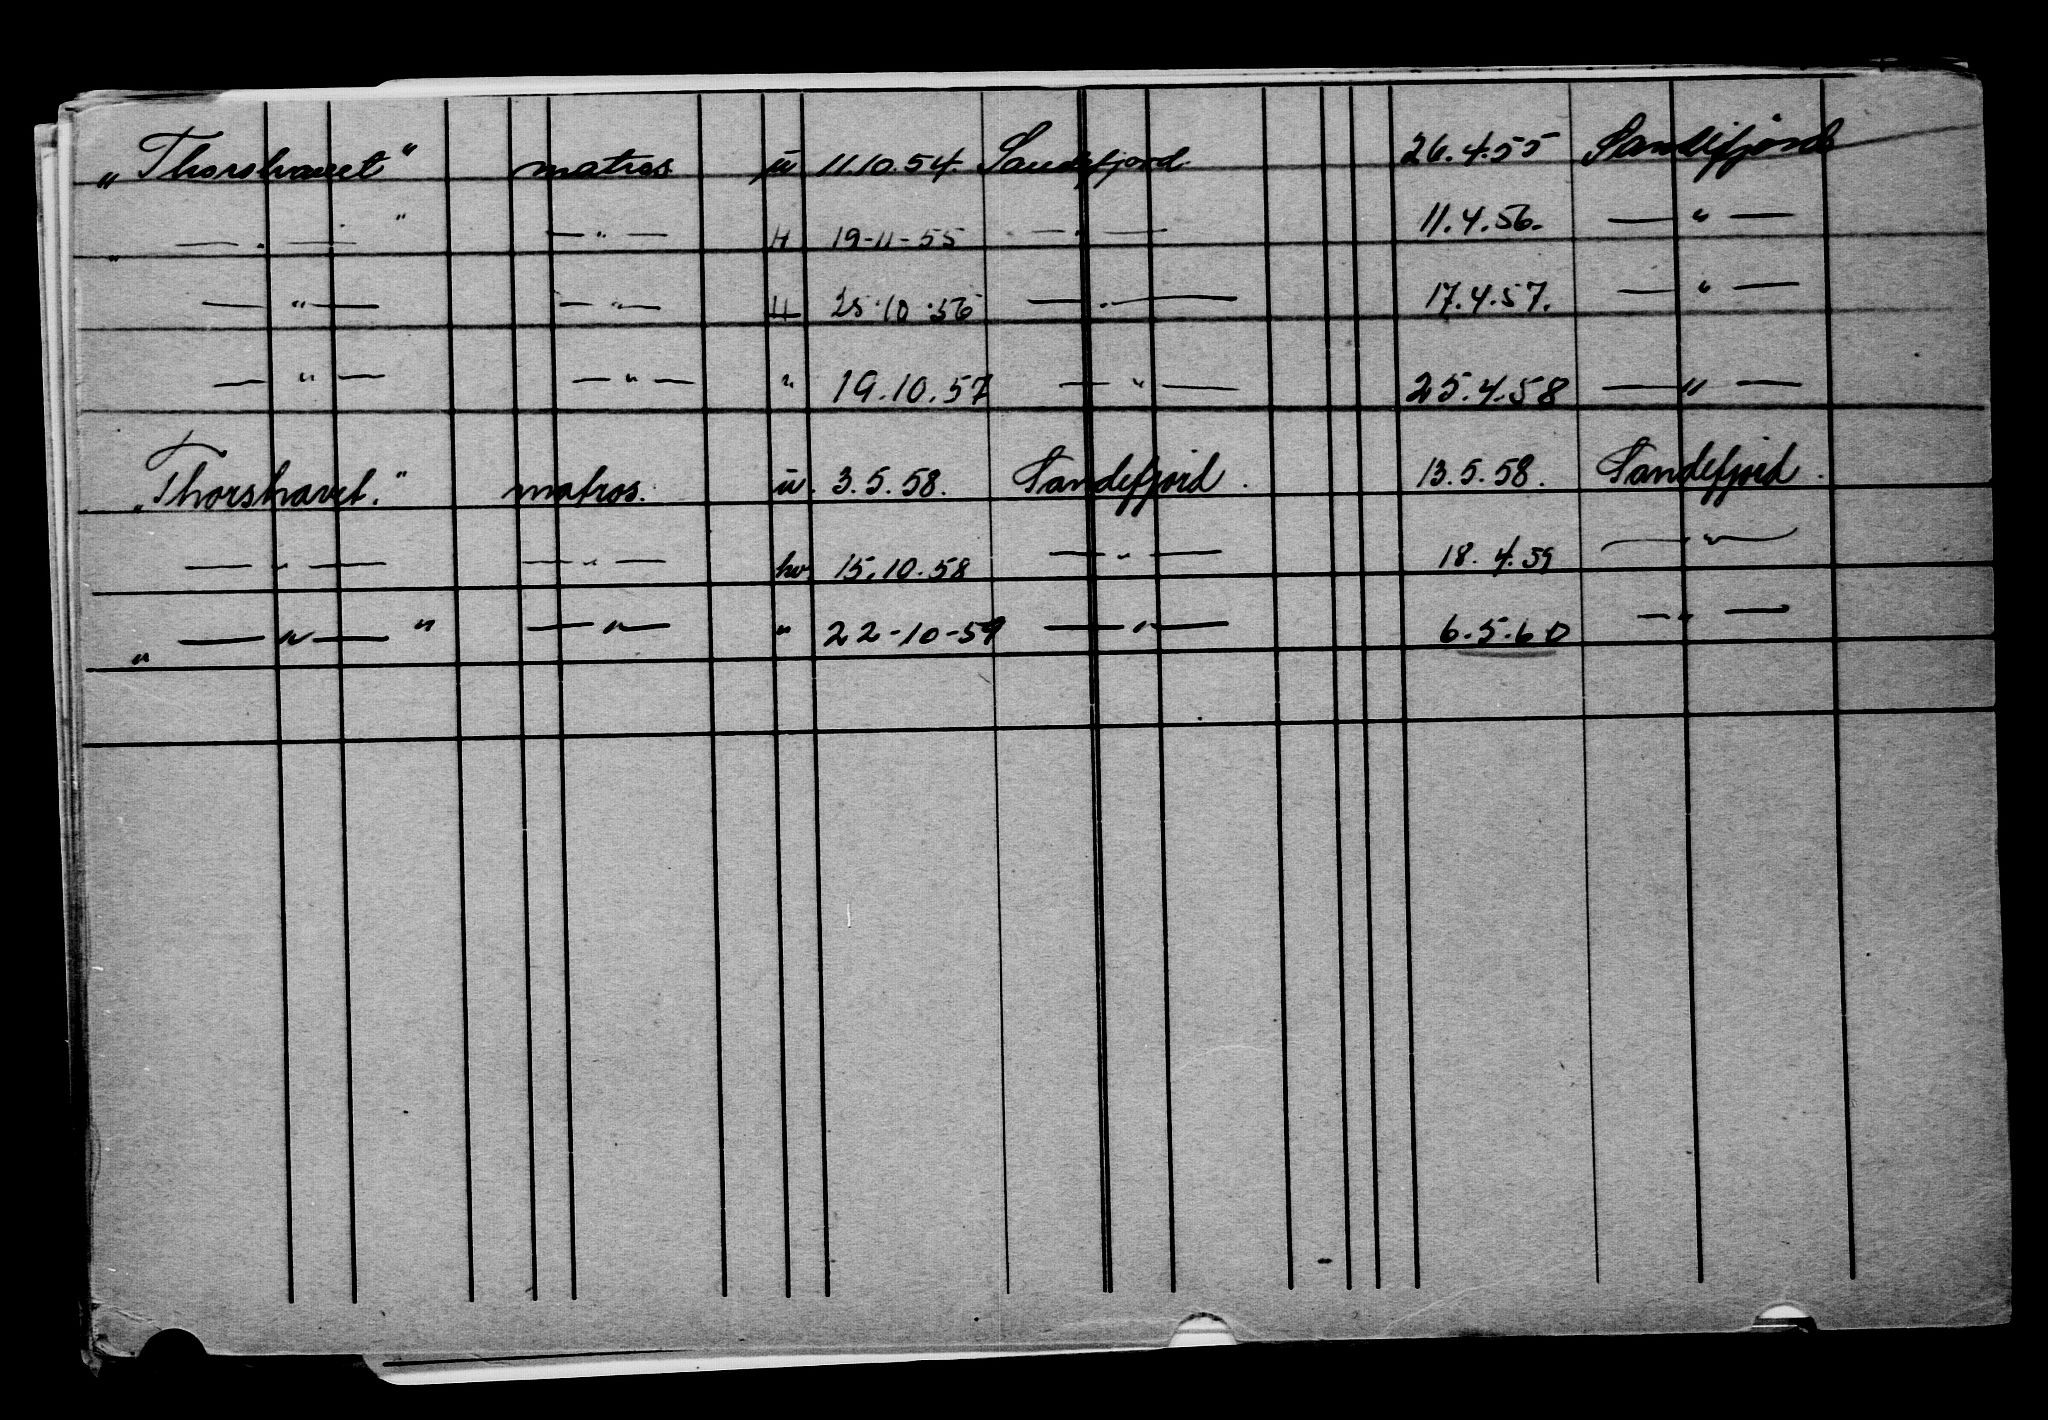 „Thorshavet“ matros ū 11.10.54. Sandefjord 26.4.55 Sandefjord
„ — „ — “ — „ — H 19-11-55 — „ — 11.4.56. — „ —
— „ — — „ — H 25.10.56 — „ — 17.4.57. — „ —
— „ — — „ — „ 19.10.57 — „ — 25.4.58 — „ —
„Thorshavet.“ matros. ū. 3.5.58. Sandefjord. 13.5.58. Sandefjord.
— „ — — „ — hv. 15.10.58 — „ — 18.4.59 — „ —
„ — „ — “ — „ — „ 22-10-59 — „ — 6.5.60 — „ —